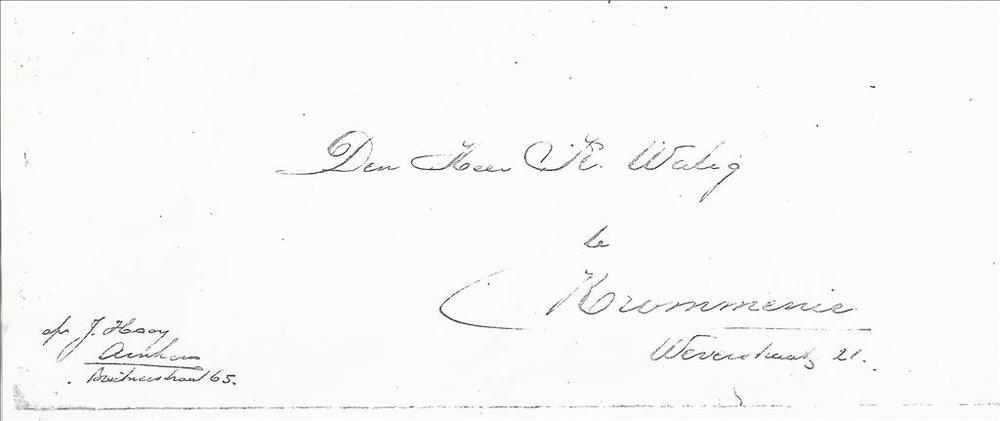 Den Heer K. Walig
te
Krommenie
Weverstraat 21.
afz. J. Haay
Arnhem
Breitnerstraat 65.